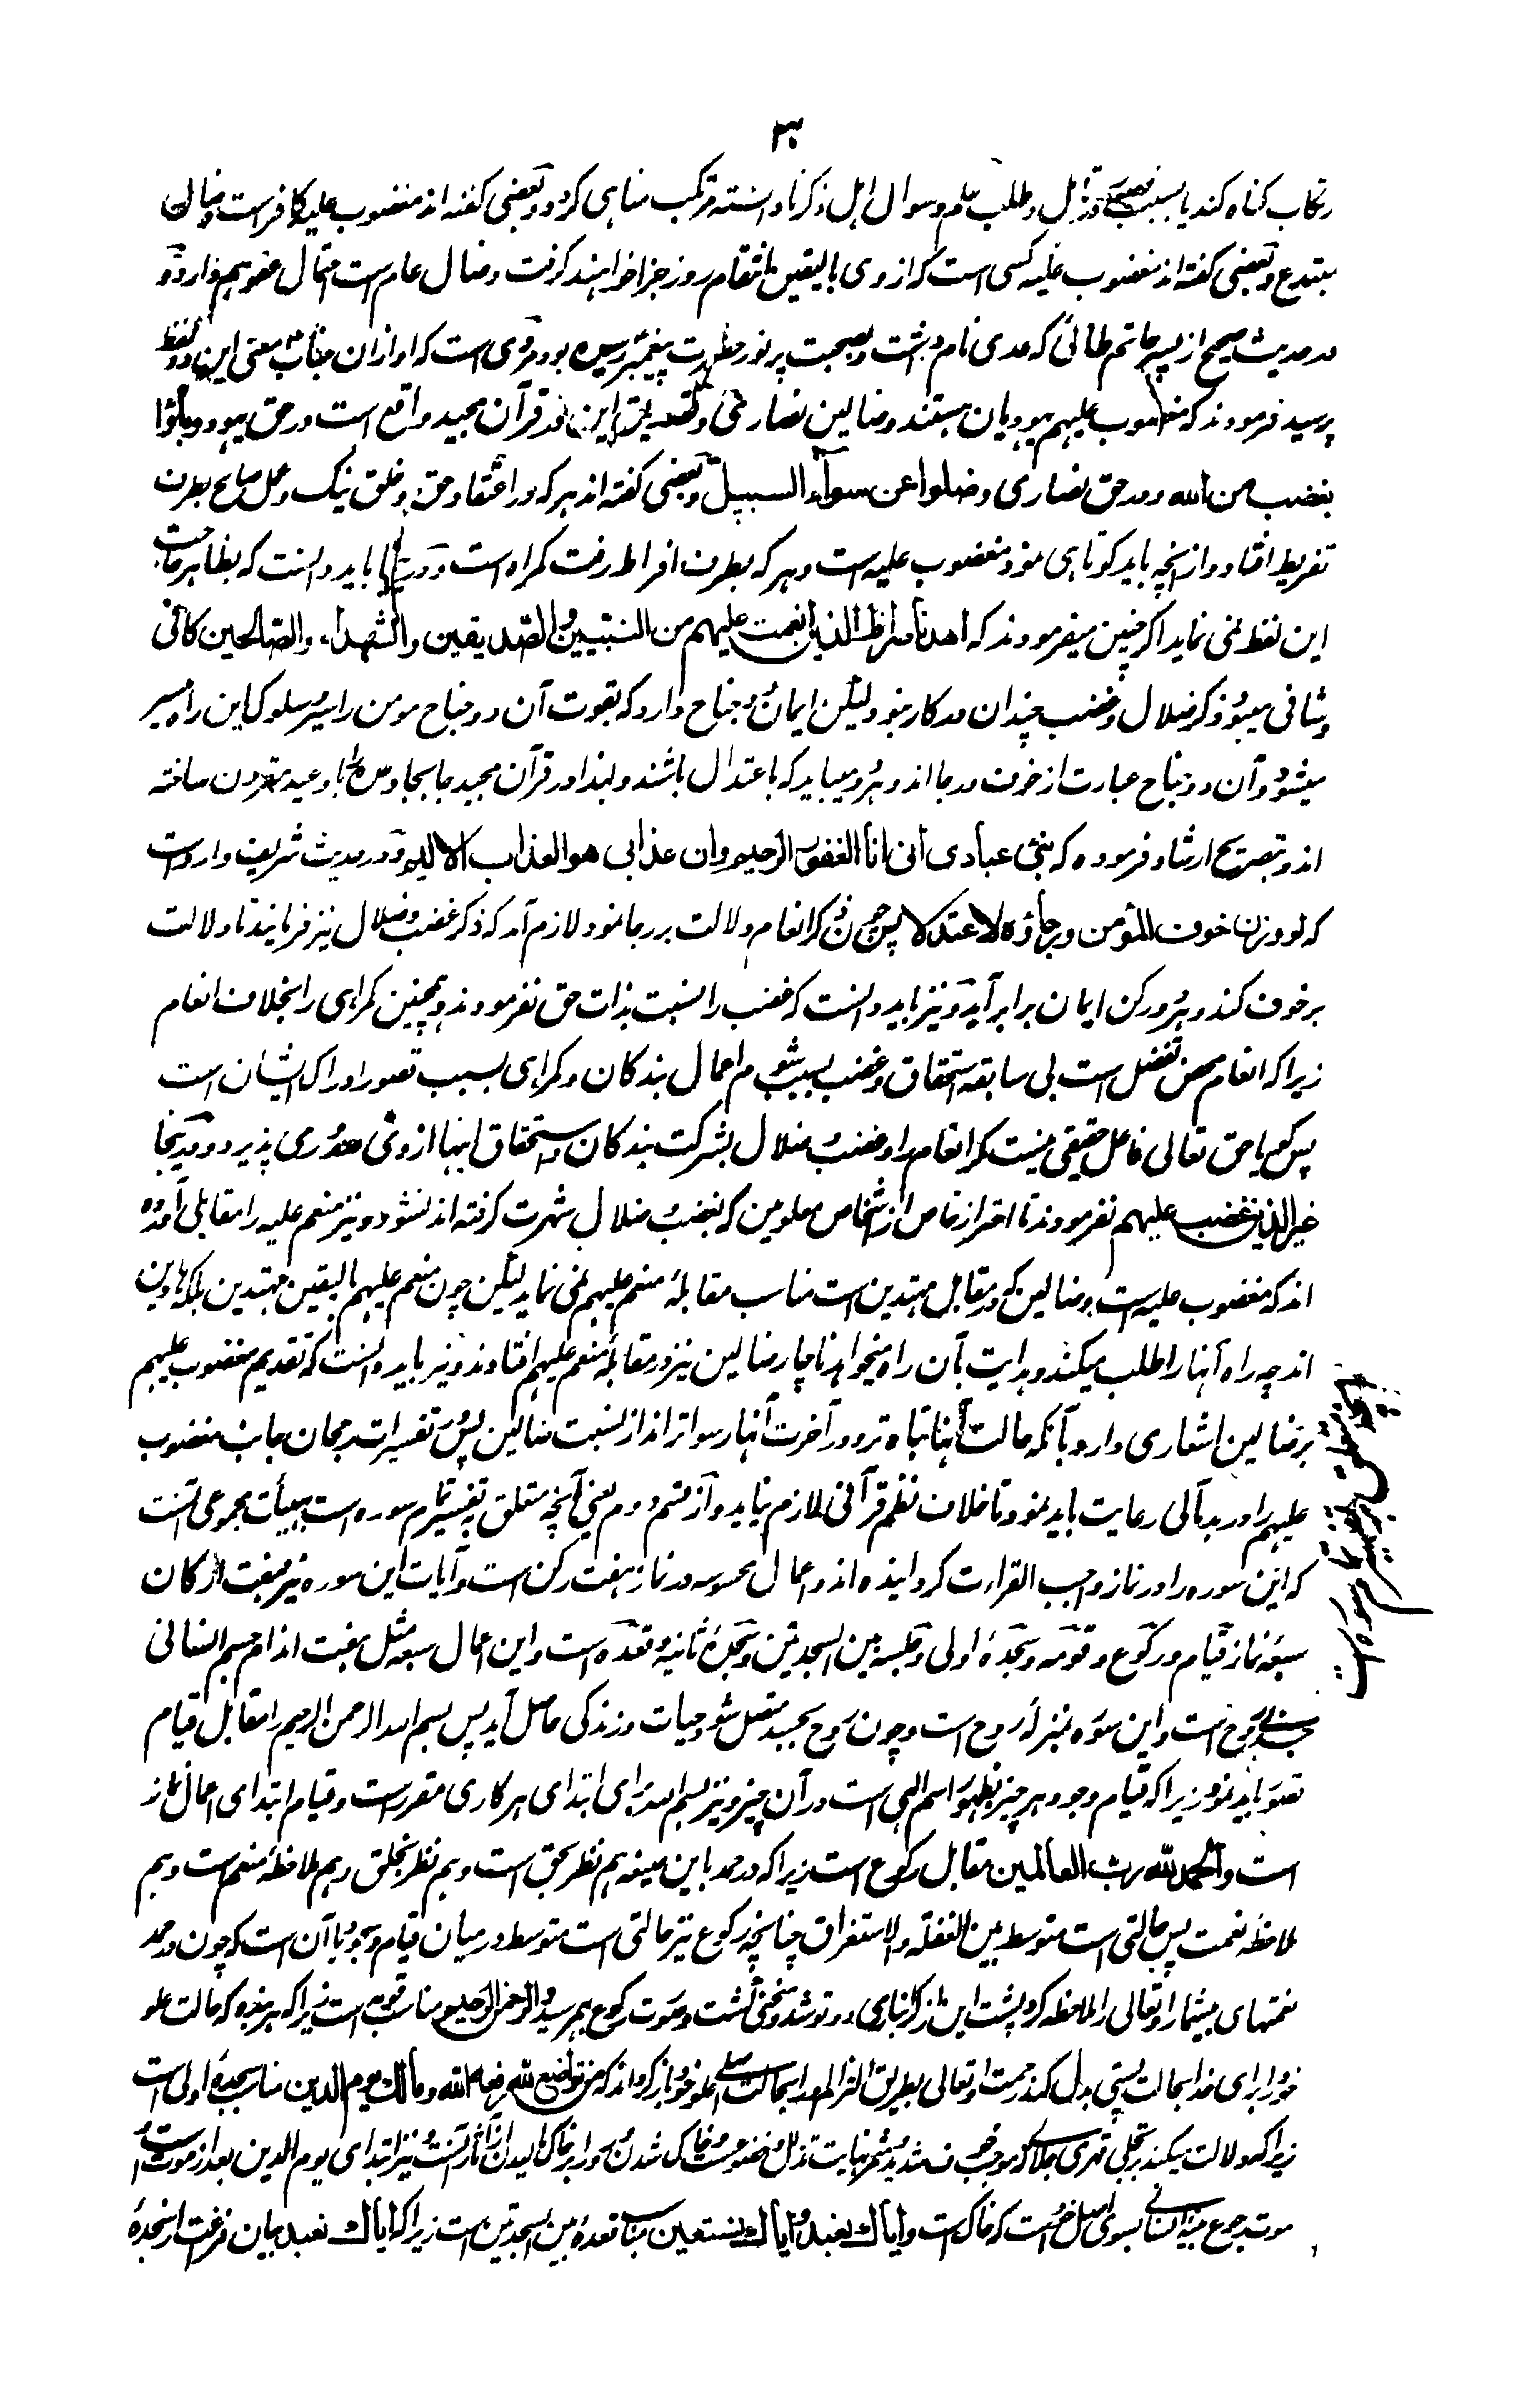 ۳۰
رتکاب کناه کند یا بسبب در تامل و طلب علم و سوال اهل ذکر نادانسته مرتکب مناهی کردد و بعضی کفته اند مغضوب علیه کافر است و ضال
مبتدع و بعضی کفته اند مغضوب علیه کسی است که از وی بالیقین انتقام روز جزا خواهند کرفت و ضال عام است احتمال عفو هم دارد و
در حدیث صحیح از پسر حاتم طائی که عدی نام داشت و بصحبت پر نور حضرت پیغمبر رسیده بود مروی است که او از ان جناب معنی این دو لفظ
پرسید فرمودند که مغضوب علیهم یهودیان هستند و ضالین نصاری و تصدیق این در قرآن مجید واقع است در حق یهود و باؤا
بغضب من الله و در حق نصاری و ضلوا عن سوآء السبیل و بعضی کفته اند هر که در اعتقاد حق و خلق نیک و عمل صالح بطرف
تفریط افتاد و از انچه باید کوتاهی نمود مغضوب علیه است و هر که بطرف افراط رفت کمراه است و درینجا باید دانست که بظاهر حاجت
این لفظ نمی نماید اکر چنین میفرمودند که اهدنا صراط الذین انعمت علیهم من النبیین والصدیقین والشهدآء والصالحین کافی
و شافی میبود ذکر ضلال و غضب چندان در کار نبود ولیکن ایمان دو جناح دارد که بقوت آن دو جناح مومن را سیر و سلوک این راه میسر
میشود و آن دو جناح عبارت از خوف و رجا اند و هر دو میباید که با عتدال باشند و لهذا در قرآن مجید جابجا وعده را با وعید مقرون ساخته
اند و بتصریح ارشاد فرموده که نبئ عبادی انی انا الغفور الرحیم وان عذابی هو العذاب الالیم و در حدیث شریف وارد است
که لو وزن خوف المؤمن و رجاؤه لاعتدلا پس چون ذکر انعام دلالت بر رجا نمود لازم آمد که ذکر غضب و ضلال نیز فرمایند تا دلالت
بر خوف کند و هر دو رکن ایمان برابر آید و نیز باید دانست که غضب را نسبت بذات حق نفرمودند و همچنین کمراهی را بخلاف انعام
زیرا که انعام محض تفضل است بی سابقه استحقاق و غضب بسبب شوم اعمال بندکان و کمراهی بسبب قصور ادراک ایشان است
پس کویا حق تعالی فاعل حقیقی نیست مکر انعام را و غضب و ضلال بشرکت بندکان و استحقاق اینها از وی صدور می پذیرد و درینجا
غیر الذین غضب علیهم نفرمودند تا احتراز خاص از اشخاص معلومین که بغضب و ضلال شهرت کرفته اند نشود و نیز منعم علیه را مقابلی آمده
اند که مغضوب علیه است و ضالین که در مقابل مهتدین است مناسب مقابلهٔ منعم علیهم نمی نماید لیکن چون منعم علیهم بالیقین مهتدین بلکه هادین
اند چه راه آنها را طلب میکنند و هدایت بآن راه میخواهند ناچار ضالین نیز در مقابلهٔ منعم علیهم افتادند و نیز باید دانست که تقدیم مغضوب علیهم
بر ضالین اشعاری دارد بآنکه حالت آنها تباه تر و در آخرت آنها رسواتر اند از نسبت ضالین پس در تفسیرات رجحان جانب مغضوب
علیهم را در بدحالی رعایت باید نمود تا خلاف نظم قرآنی لازم نیاید و از قسم دوم یعنی آنچه متعلق به تفسیر تمام سوره است بهیأت مجموعی آنست
که این سوره را در نماز واجب القراءت کردانیده اند و اعمال محسوسه در نماز هفت رکن است و آیات این سوره نیز هفت ارکان
سبعه نماز قیام و رکوع و قومه و سجدهٔ اولی و جلسه بین السجدتین و سجدهٔ ثانیه و قعده است و این اعمال سبعه مثل هفت اندام جسم انسانی
بی روح است و این سوره بمنزلهٔ روح است و چون روح بجسد متصل شود حیات و زندکی حاصل آید پس بسم الله الرحمن الرحیم را مقابل قیام
تصور باید نمود زیرا که قیام وجود هر چیز بظهور اسم الهی است در آن چیز و نیز بسم الله برای ابتدای هر کاری مقرر است و قیام ابتدای اعمال نماز
است و الحمد لله رب العالمین مقابل رکوع است زیرا که در حمد باین صیغه هم نظر بحق است و هم نظر بخلق و هم ملاحظهٔ منعم است و هم
ملاحظهٔ نعمت پس حالتی است متوسط بین الغفلة والاستغراق چنانچه رکوع نیز حالتی است متوسط در میان قیام و سجود با آن است که چون در حمد
نعمتهای بیشمار او تعالی را ملاحظه کرد پشت این از کرانباری دو تو شد و منحنی کشت و صورت رکوع بهم رسید و الرحمن الرحیم مناسب قومه است زیرا که هر بنده که حالت علو
خود را برای خدا بحالت پستی بدل کند رحمت او تعالی بطریق التزام او را بحالت اصلی علو خود باز کرداند که من تواضع لله رفعه الله و مالک یوم الدین مناسب سجدهٔ اولی است
زیرا که دلالت میکند بر تجلی قهری جلالی که موجب خوف شدید و مثمر نهایت تذلل و خضوع است و خاک شدن و سر و رو بر خاک مالیدن از آثار آنست و نیز ابتدای یوم الدین بعد از موت است و
موت رجوع بنیهٔ انسانی بسوی اصل خود است که خاک است و ایاک نعبد و ایاک نستعین مناسب قعدهٔ بین السجدتین است زیرا که ایاک نعبد بیان فراغت از سجدهٔ